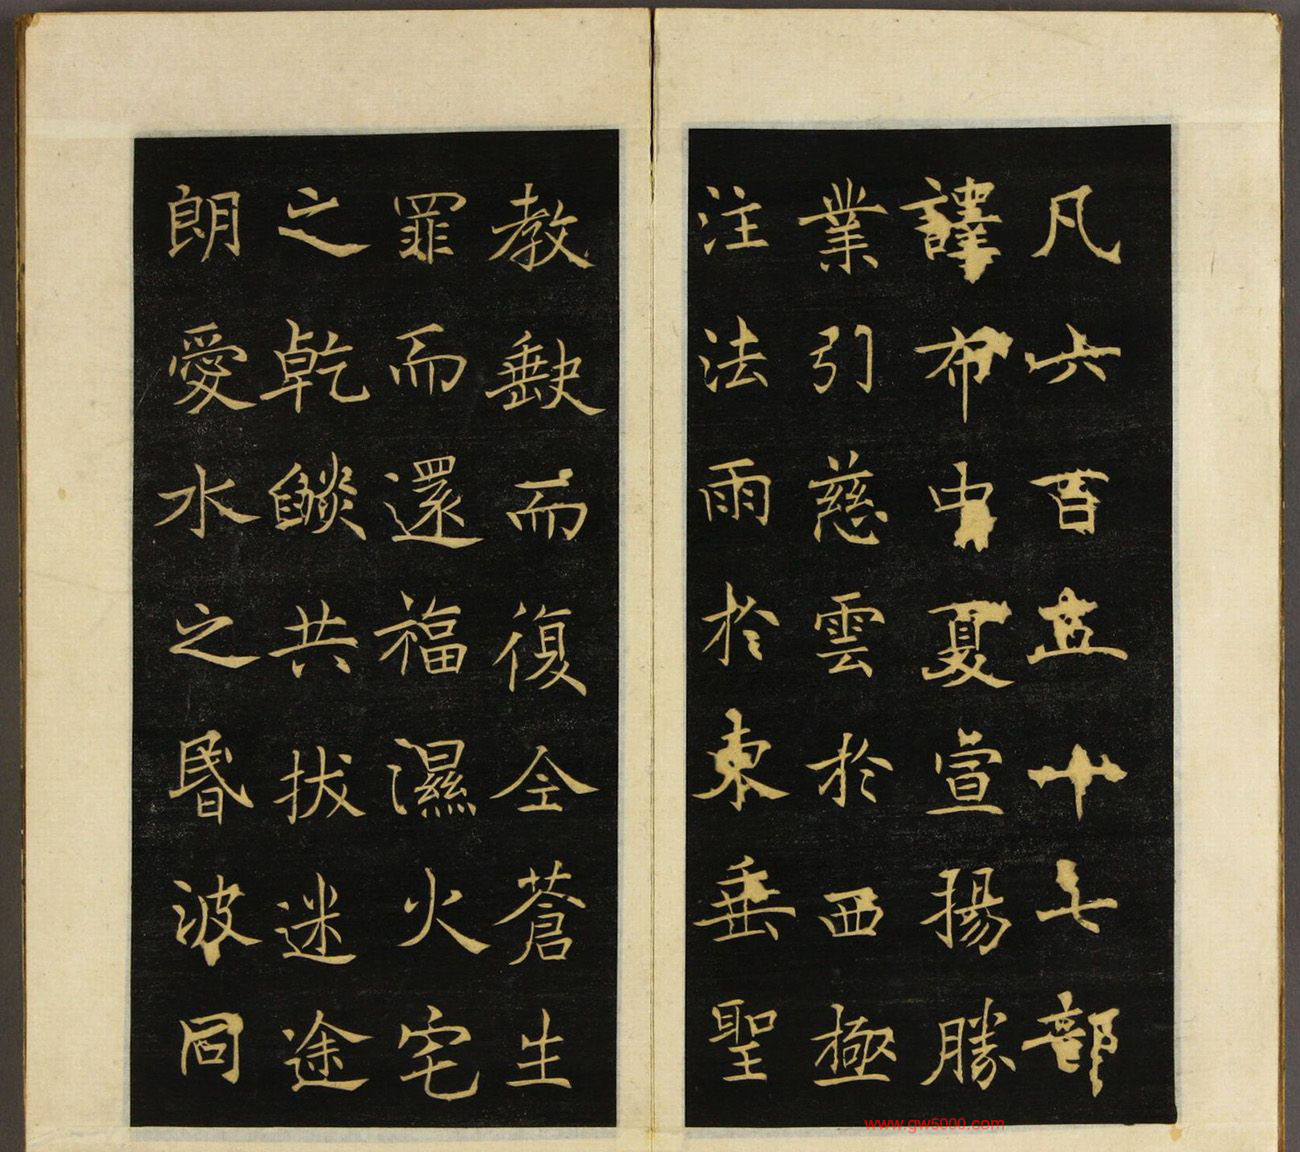 凡六百五十七部
譯布中夏宣揚勝
業引慈雲於西極
注法雨於東垂聖
教缺而復全蒼生
罪而還福濕火宅
之乾燄共拔迷途
朗愛水之昬波同
www.gw5000.com